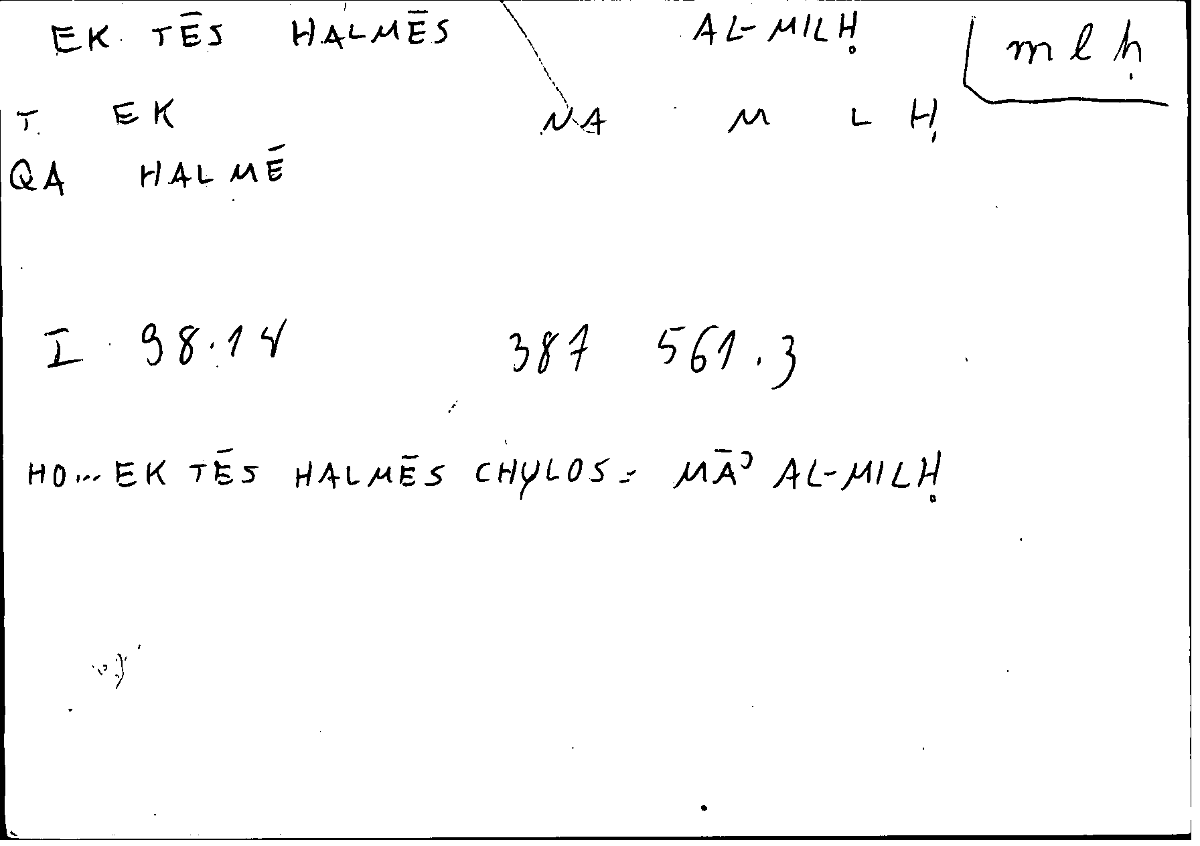 EK TĒS HALMĒS AL-MILḤ mlḥ
T. EK NA M L Ḥ
QA HALMĒ
I 98.14 387 561.3
HO... EK TĒS HALMĒS CHYLOS = MĀʾ AL-MILḤ